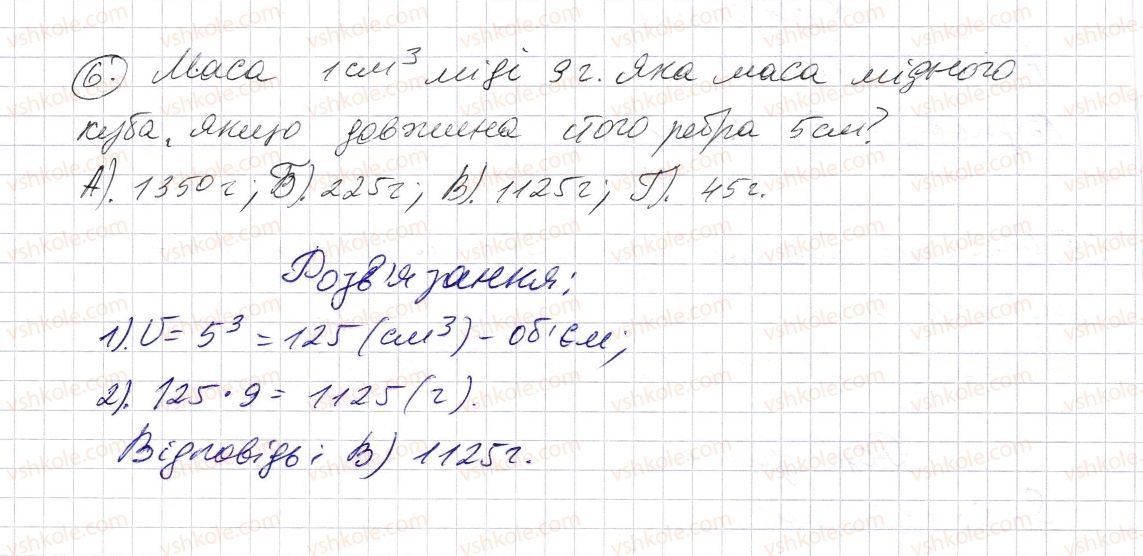 6. Маса 1 см³ міді 9 г. Яка маса мідного
куба, якщо довжина його ребра 5 см?
А). 1350 г; Б). 225 г; В). 1125 г; Г). 45 г.
Розв'язання:
1). V = 5³ = 125 (см³) - об'єм;
2). 125 · 9 = 1125 (г).
Відповідь: В) 1125 г.
vshkole.com